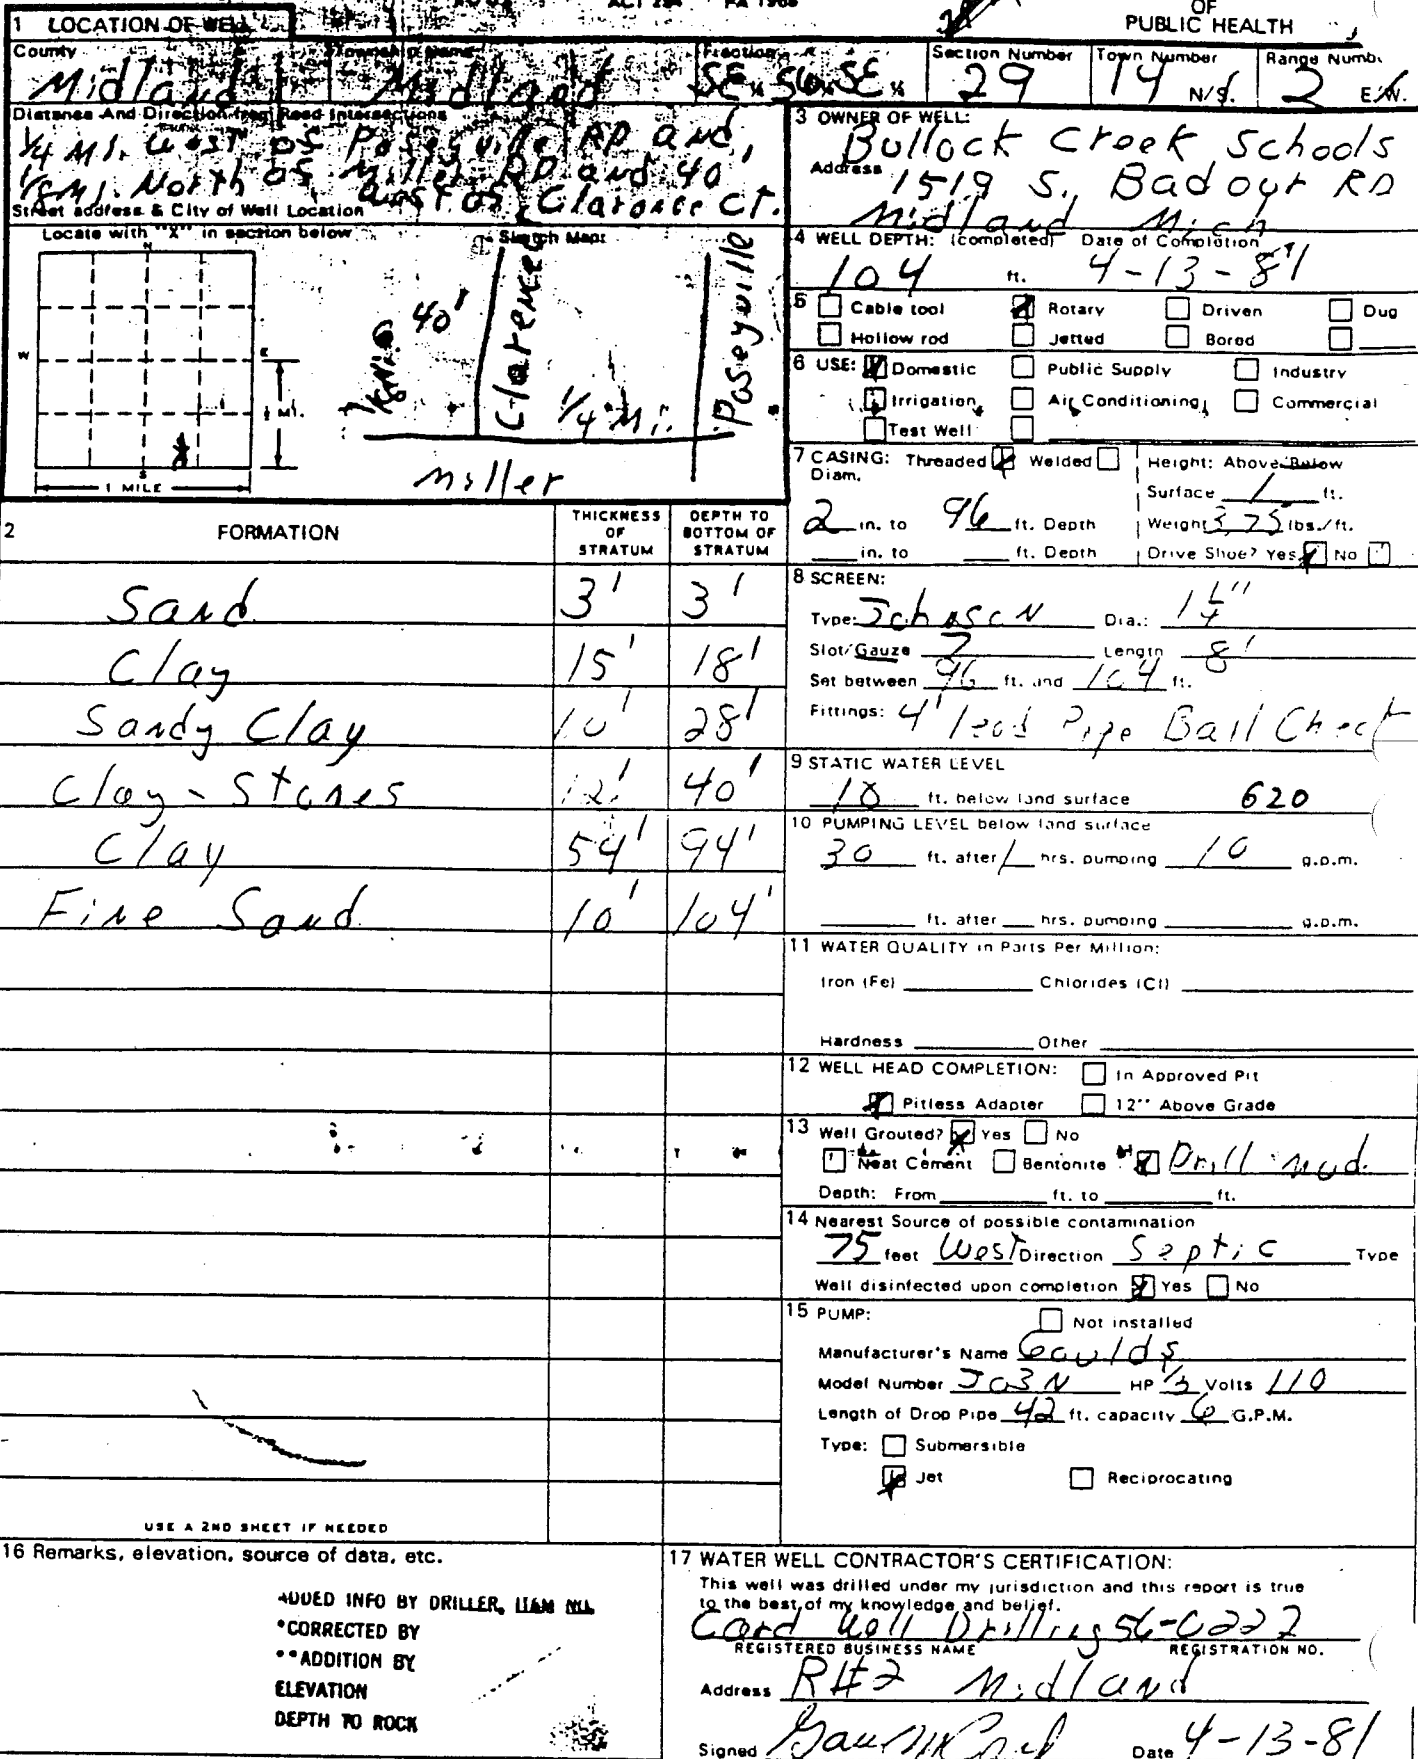 ACT 294 PA 1965
OF
PUBLIC HEALTH
1 LOCATION OF WELL
County
Township Name
Fraction
Section Number
Town Number
Range Numb.
Midland
Midland
SE ¼ SW ¼ SE ¼
29
14 N/S.
2 E/W.
Distance And Direction from Road Intersections
¼ Mi. West of Poseyville RD and
1/8 Mi. North of Miller RD and 40'
west of Clarence CT.
Street address & City of Well Location
Locate with "X" in section below
Sketch Map:
N
W
E
S
½ MI.
1 MILE
1/8 Mi.
40'
Clarence
¼ Mi.
Poseyville
Miller
3 OWNER OF WELL:
Bullock Creek Schools
Address 1519 S. Badour RD
Midland Mich
4 WELL DEPTH: (completed) Date of Completion
104 ft. 4-13-81
5 Cable tool Rotary Driven Dug
Hollow rod Jetted Bored
6 USE: Domestic Public Supply Industry
Irrigation Air Conditioning Commercial
Test Well
7 CASING: Threaded Welded Height: Above/Below
Diam.
Surface 1 ft.
2 in. to 96 ft. Depth Weight 3.75 lbs./ft.
in. to ft. Depth Drive Shoe? Yes No
2 FORMATION
THICKNESS OF STRATUM
DEPTH TO BOTTOM OF STRATUM
Sand 3' 3'
Clay 15' 18'
Sandy Clay 10' 28'
Clay - Stones 12' 40'
Clay 54' 94'
Fine Sand 10' 104'
8 SCREEN:
Type: Johnson Dia.: 1¼"
Slot/Gauze 7 Length 8'
Set between 96 ft. and 104 ft.
Fittings: 4' lead Pipe Ball Check
9 STATIC WATER LEVEL
18 ft. below land surface 620
10 PUMPING LEVEL below land surface
30 ft. after 1 hrs. pumping 10 g.p.m.
ft. after hrs. pumping g.p.m.
11 WATER QUALITY in Parts Per Million:
Iron (Fe) Chlorides (Cl)
Hardness Other
12 WELL HEAD COMPLETION: In Approved Pit
Pitless Adapter 12" Above Grade
13 Well Grouted? Yes No
Neat Cement Bentonite Drill mud
Depth: From ft. to ft.
14 Nearest Source of possible contamination
75 feet West Direction Septic Type
Well disinfected upon completion Yes No
15 PUMP: Not installed
Manufacturer's Name Goulds
Model Number J03N HP 1/3 Volts 110
Length of Drop Pipe 42 ft. capacity 6 G.P.M.
Type: Submersible
Jet Reciprocating
USE A 2ND SHEET IF NEEDED
16 Remarks, elevation, source of data, etc.
ADDED INFO BY DRILLER, ITEM NO.
*CORRECTED BY
**ADDITION BY
ELEVATION
DEPTH TO ROCK
17 WATER WELL CONTRACTOR'S CERTIFICATION:
This well was drilled under my jurisdiction and this report is true
to the best of my knowledge and belief.
Card Well Drilling 56-0222
REGISTERED BUSINESS NAME REGISTRATION NO.
Address R#2 Midland
Signed
Date 4-13-81